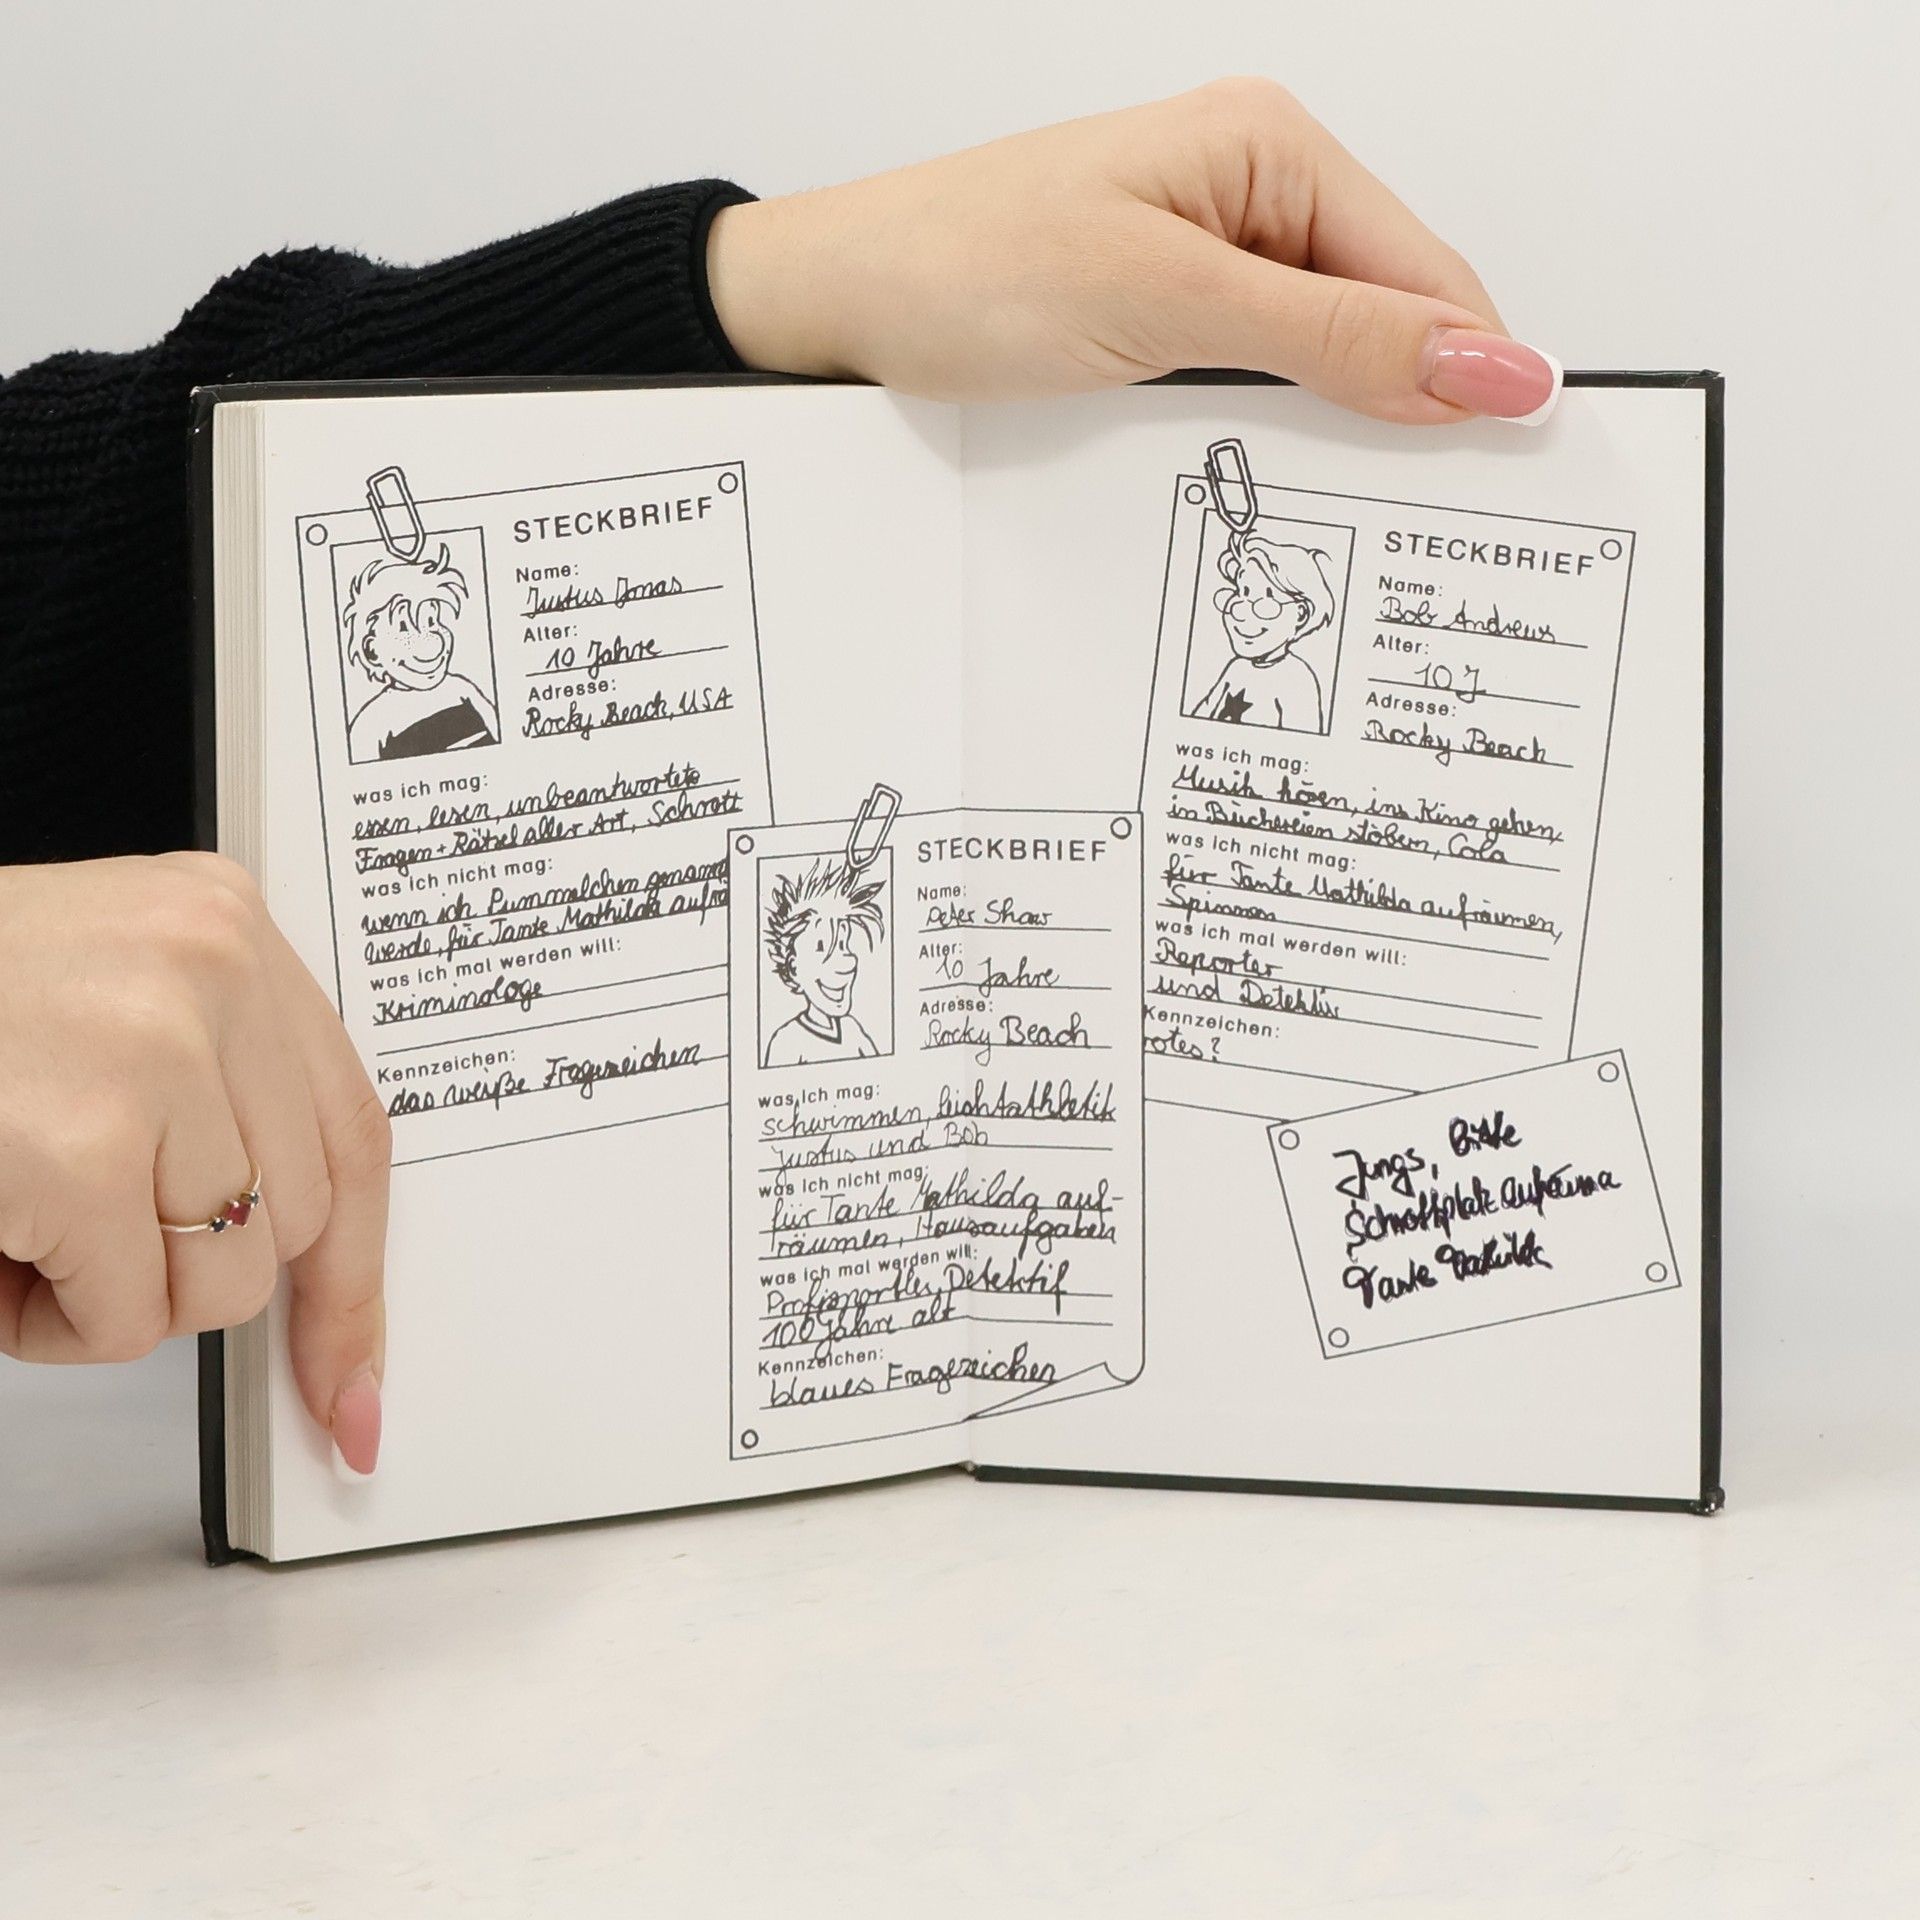 STECKBRIEF
Name:
Justus Jonas
Alter:
10 Jahre
Adresse:
Rocky Beach, USA
was ich mag:
essen, lesen, unbeantwortete
Fragen + Rätsel aller Art, Schrott
was ich nicht mag:
wenn ich Pummelchen genannt
werde, für Tante Mathilda aufrä
was ich mal werden will:
Kriminologe
Kennzeichen:
das weiße Fragezeichen
STECKBRIEF
Name:
Peter Shaw
Alter:
10 Jahre
Adresse:
Rocky Beach
was ich mag:
schwimmen, Leichtathletik
Justus und Bob
was ich nicht mag:
für Tante Mathilda auf-
räumen, Hausaufgaben
was ich mal werden will:
Profisportler, Detektif
100 Jahre alt
Kennzeichen:
blaues Fragezeichen
STECKBRIEF
Name:
Bob Andrews
Alter:
10 J
Adresse:
Rocky Beach
was ich mag:
Musik hören, ins Kino gehen,
in Büchereien stöbern, Cola
was ich nicht mag:
für Tante Mathilda aufräumen,
Spinnen
was ich mal werden will:
Reporter
und Detektiv
Kennzeichen:
rotes ?
Jungs, Bitte
Schrottplatz aufräuma
Tante Mathilda